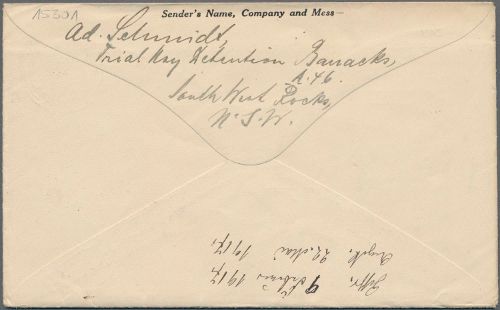 15301
Sender's Name, Company and Mess—
Ad. Schmidt,
Trial Bay Detention Barracks,
A. 46.
South West Rocks,
N. S. W.
Gesch. 9 Februar 1917
Angek. 22. Mai 1917.